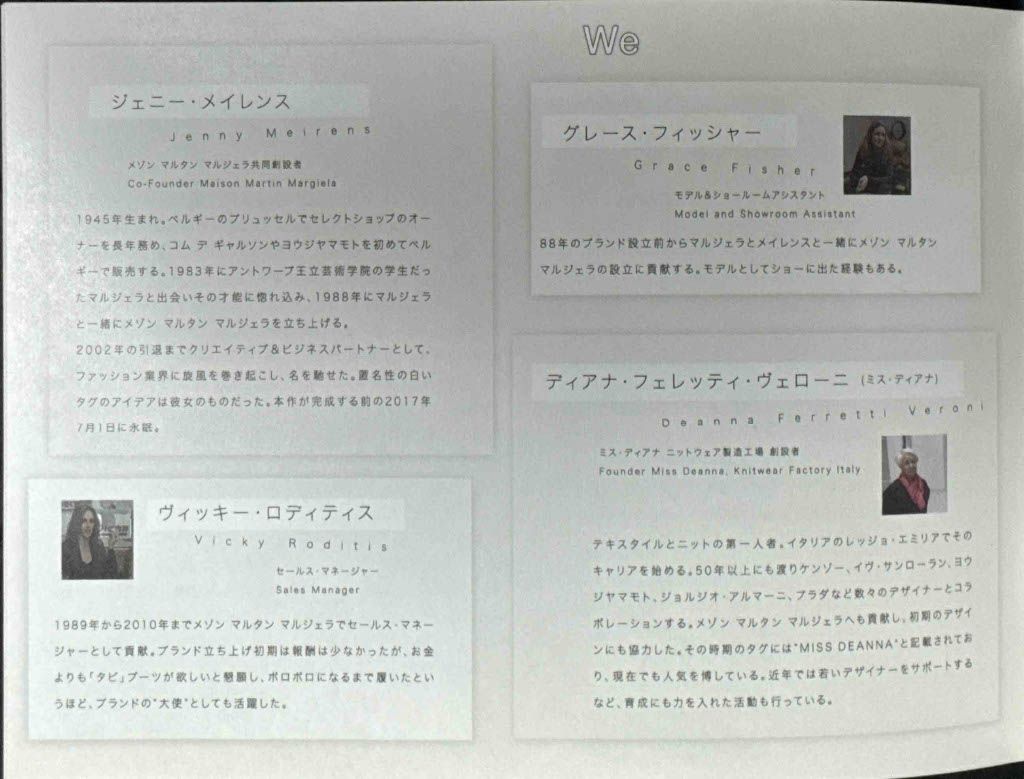 We
ジェニー・メイレンス
Jenny Meirens
メゾン マルタン マルジェラ共同創設者
Co-Founder Maison Martin Margiela
1945年生まれ。ベルギーのブリュッセルでセレクトショップのオー
ナーを長年務め、コム デ ギャルソンやヨウジヤマモトを初めてベル
ギーで販売する。1983年にアントワープ王立芸術学院の学生だっ
たマルジェラと出会いその才能に惚れ込み、1988年にマルジェラ
と一緒にメゾン マルタン マルジェラを立ち上げる。
2002年の引退までクリエイティブ&ビジネスパートナーとして、
ファッション業界に旋風を巻き起こし、名を馳せた。匿名性の白い
タグのアイデアは彼女のものだった。本作が完成する前の2017年
7月1日に永眠。
ヴィッキー・ロディティス
Vicky Roditis
セールス・マネージャー
Sales Manager
1989年から2010年までメゾン マルタン マルジェラでセールス・マネー
ジャーとして貢献。ブランド立ち上げ初期は報酬は少なかったが、お金
よりも「タビ」ブーツが欲しいと懇願し、ボロボロになるまで履いたとい
うほど、ブランドの"大使"としても活躍した。
グレース・フィッシャー
Grace Fisher
モデル&ショールームアシスタント
Model and Showroom Assistant
88年のブランド設立前からマルジェラとメイレンスと一緒にメゾン マルタン
マルジェラの設立に貢献する。モデルとしてショーに出た経験もある。
ディアナ・フェレッティ・ヴェローニ (ミス・ディアナ)
Deanna Ferretti Veroni
ミス・ディアナ ニットウェア製造工場 創設者
Founder Miss Deanna, Knitwear Factory Italy
テキスタイルとニットの第一人者。イタリアのレッジョ・エミリアでその
キャリアを始める。50年以上にも渡りケンゾー、イヴ・サンローラン、ヨウ
ジヤマモト、ジョルジオ・アルマーニ、プラダなど数々のデザイナーとコラ
ボレーションする。メゾン マルタン マルジェラへも貢献し、初期のデザイ
ンにも協力した。その時期のタグには"MISS DEANNA"と記載されてお
り、現在でも人気を博している。近年では若いデザイナーをサポートする
など、育成にも力を入れた活動も行っている。